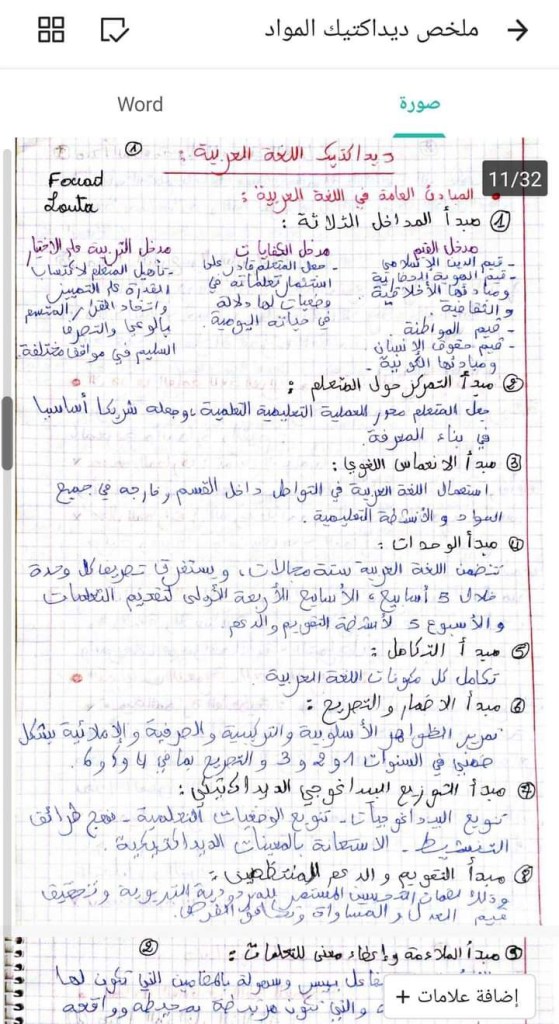 ملخص ديداكتيك المواد
صورة
Word
11/32
ديداكتيك اللغة العربية :
1
Fouad
Louta
المبادئ العامة في اللغة العربية :
1 مبدأ المداخل الثلاثة :
مدخل القيم
- قيم الدين الإسلامي
- قيم الهوية الحضارية
ومبادئها الأخلاقية
و الثقافية.
- قيم المواطنة.
- قيم حقوق الإنسان
ومبادئها الكونية.
مدخل الكفايات
- جعل المتعلم قادر على
استثمار تعلماته في
وضعيات لها دلالة
في حياته اليومية.
مدخل التربية على الاختيار
- تأهيل المتعلم لاكتساب
القدرة على التمييز
واتخاد القرار المتسم
بالوعي والتصرف
السليم في مواقف مختلفة.
2 مبدأ التمركز حول المتعلم :
جعل المتعلم محور العملية التعليمية التعلمية، وجعله شريكا أساسيا
في بناء المعرفة.
3 مبدأ الانغماس اللغوي :
استعمال اللغة العربية في التواصل داخل القسم وخارجه في جميع
المواد و الأنشطة التعليمية.
4 مبدأ الوحدات :
تتضمن اللغة العربية ستة مجالات، ويستغرق تصريف كل وحدة
خلال 5 أسابيع، الأسابيع الأربعة الأولى لتقديم التعلمات
و الأسبوع 5 لأنشطة التقويم والدعم.
5 مبدأ التكامل :
تكامل كل مكونات اللغة العربية.
6 مبدأ الاضمار والتصريح :
تمرير الظواهر الأسلوبية والتركيبية والصرفية و الإملائية بشكل
ضمني في السنوات 1 و 2 و 3 و التصريح بها في 4 و 5 و 6.
7 مبدأ التوزيع البيداغوجي الديداكتيكي :
تنويع البيداغوجيات - تنويع الوضعيات التعلمية - نهج طرائق
التنشيط - الاستعانة بالمعينات الديداكتيكية.
8 مبدأ التقويم و الدعم المنتظمين :
وذلك لضمان التحسين المستمر للمردودية التربوية و تحقيق
قيم العدل و المساواة وتكافؤ الفرص.
2
9 مبدأ الملاءمة وإعطاء معنى للتعلمات :
بيسر وسهولة بالمضامين التي تكون لها
والتي تكون مرتبطة بمحيطه وواقعه
إضافة علامات +